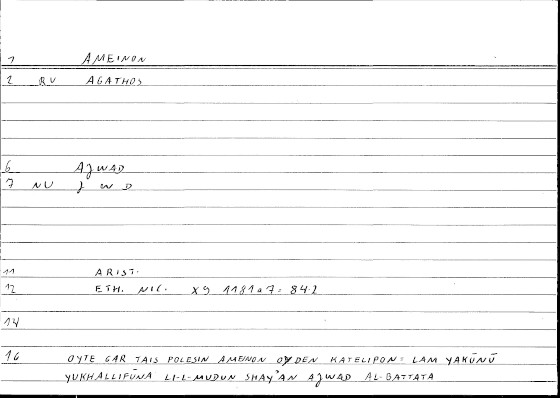 1 AMEINON
2 RV AGATHOS
6 AJWAD
7 NV J W D
11 ARIST.
12 ETH. NIC. X9 1181a7 = 84.2
14
16 OYTE GAR TAIS POLESIN AMEINON OYDEN KATELIPON = LAM YAKŪNŪ
YUKHALLIFŪNA LI-L-MUDUN SHAY'AN AJWAD AL-BATTATA